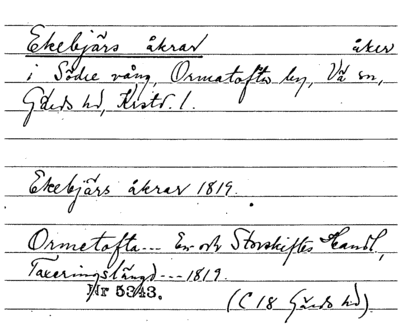 Ekebjärs åkrar åker
i Södre vång, Ormatofta by, Vä sn,
Gärds hd, Krstd. l.
Ekebjärs åkrar 1819.
Ormetofta --- En och Storskiftes Handl,
Taxeringslängd --- 1819.
Nr 53/43. (C 18 Gärds hd)